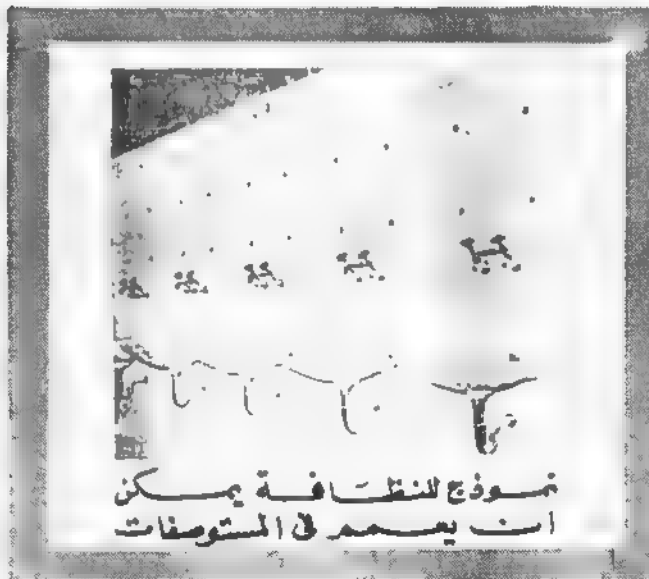 نموذج للنظافة يمكن
ان يعمم في المستوصفات